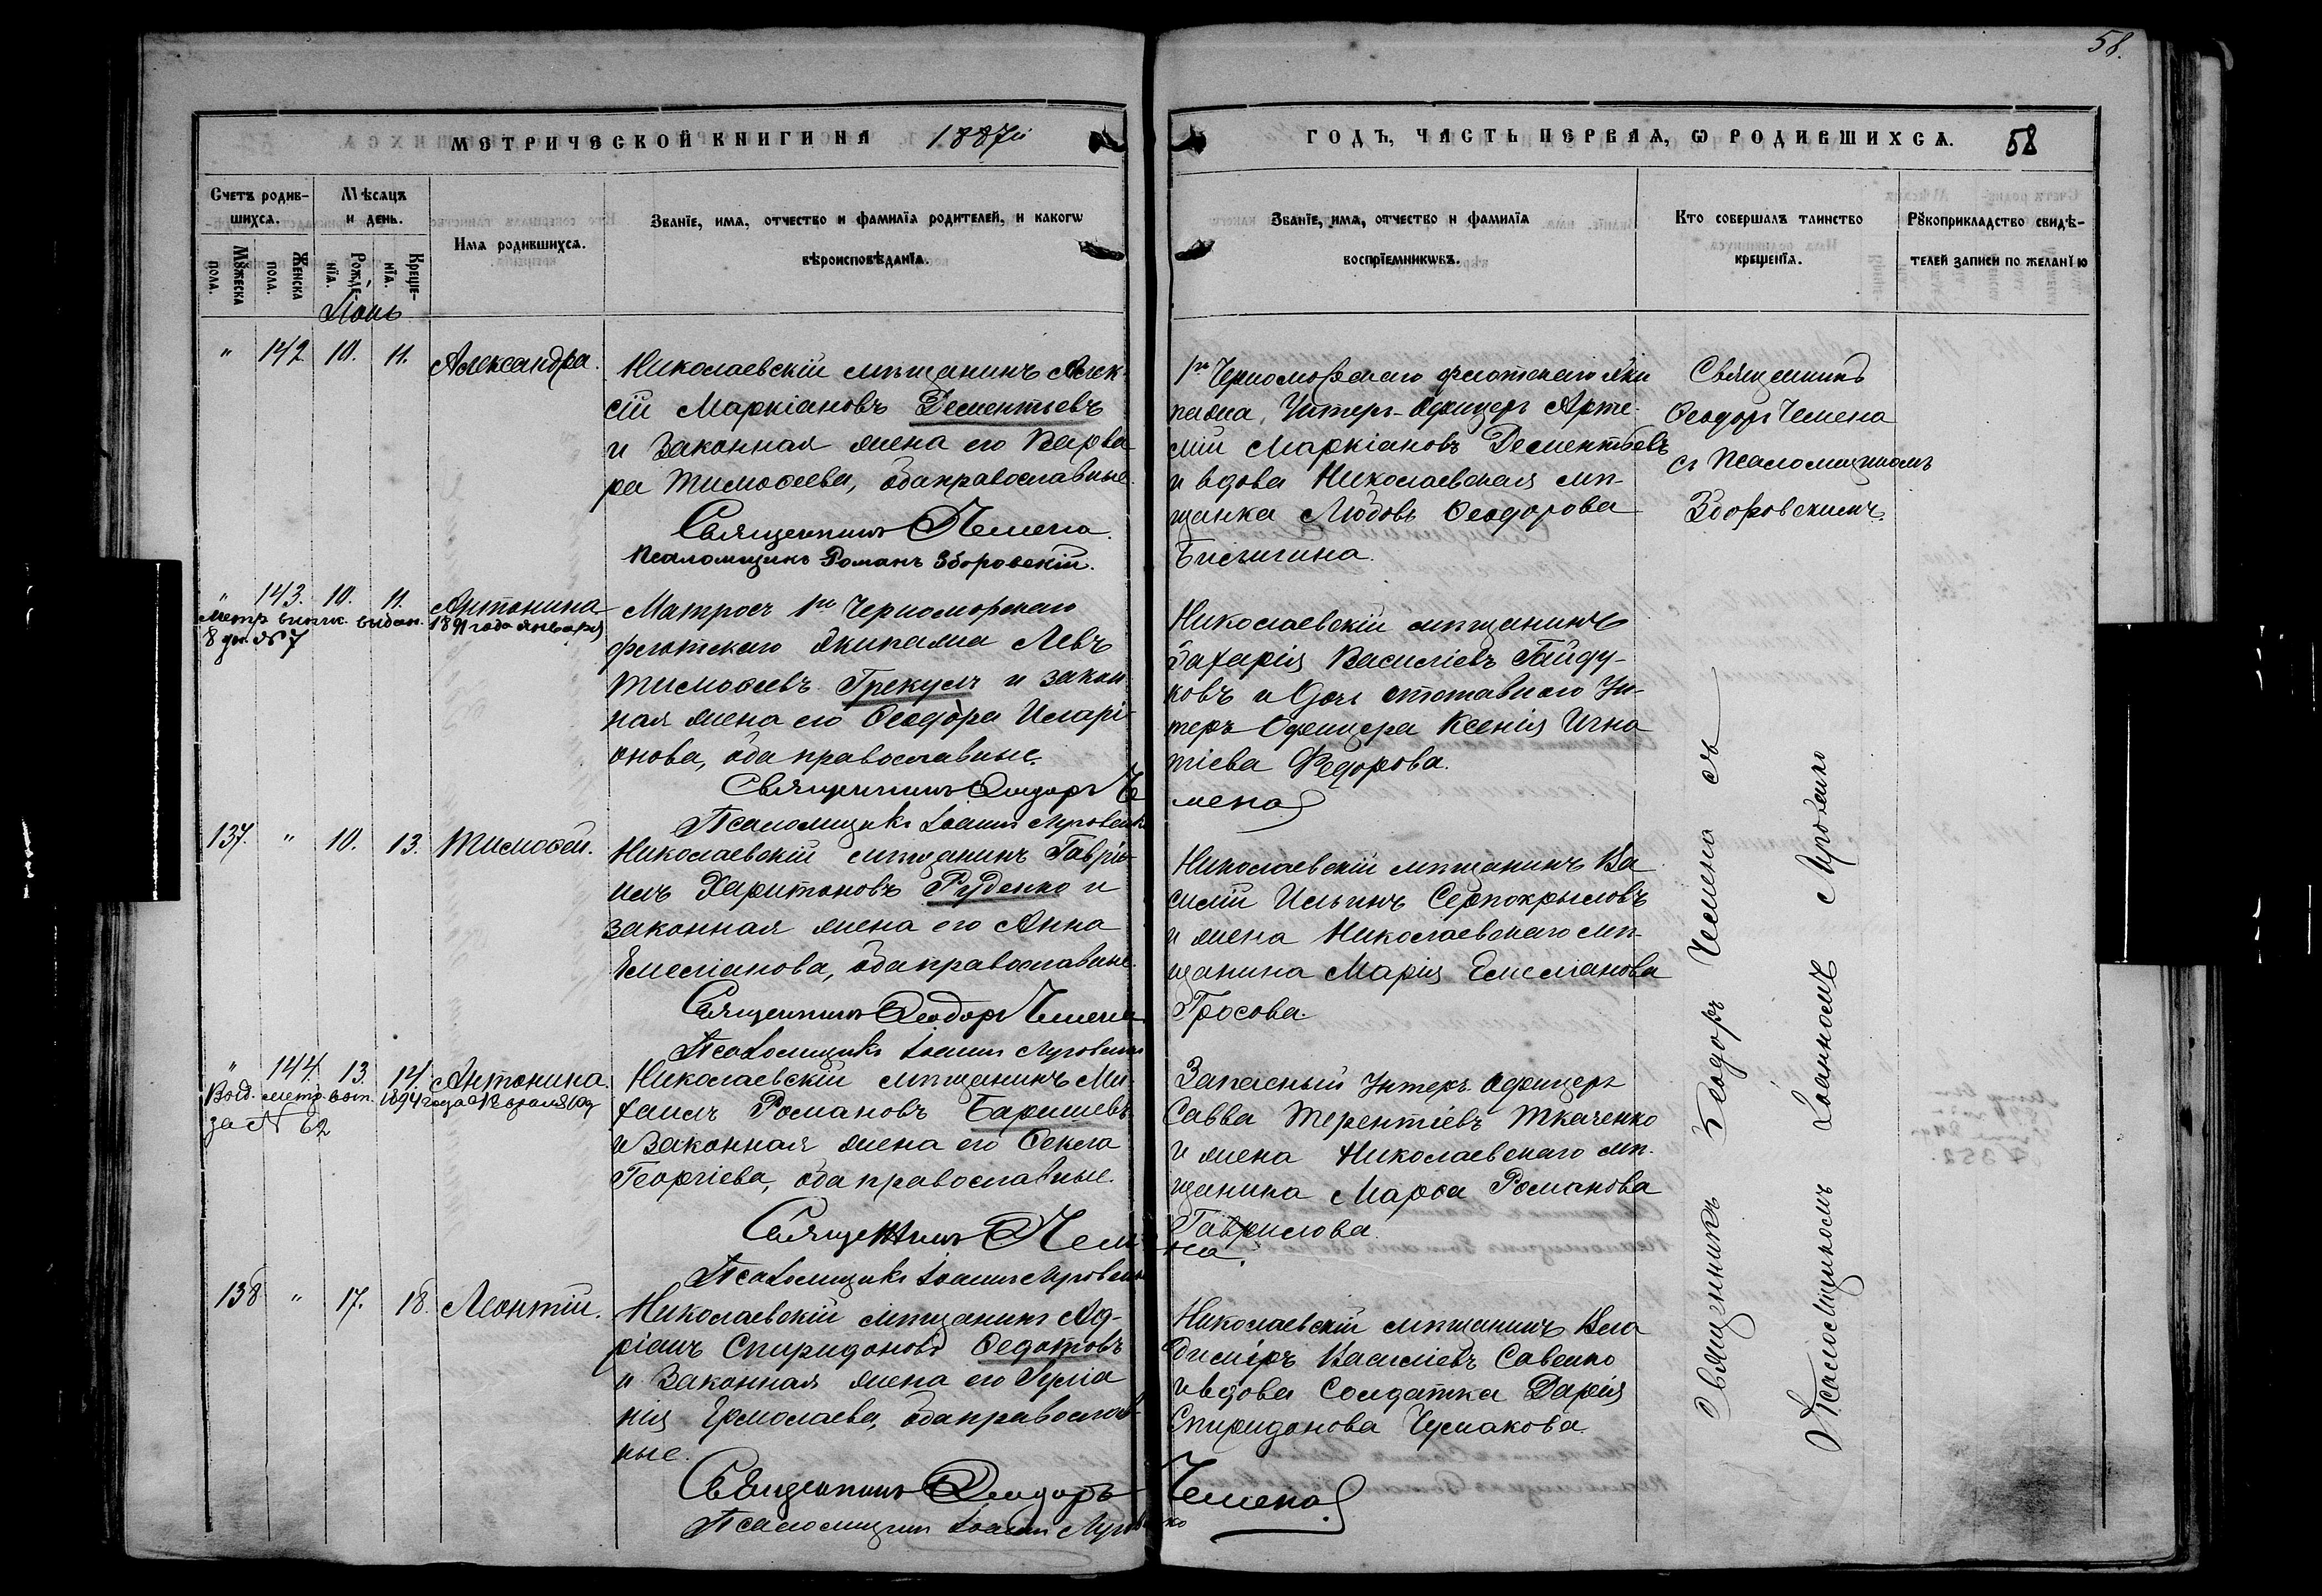 58.
МЕТРИЧЕСКОЙ КНИГИ НА 1887й
ГОДЪ, ЧАСТЬ ПЕРВАѦ, Ѡ РОДИВШИХСѦ. 58
Счетъ родив-
шихсѧ.
Мꙋжеска
пола.
Женска
пола.
Мѣсяцъ
и день.
Рожде-
нїѧ.
Креще-
нїѧ.
Имѧ родившихсѧ.
Званїе, имѧ, отчество и фамилїѧ родителей, и какогѡ
вѣроисповѣданїѧ.
Званїе, имѧ, отчество и фамилїѧ
воспрїемникѡвъ.
Кто совершалъ таинство
крещенїѧ.
Рꙋкоприкладство свидѣ-
телей записи по желанїю
" 142 10. 11. Александра.
Николаевскій мѣщанинъ Алек-
сій Маркіановъ Дементьевъ
и законная жена его Варва
ра Тимоѳеева, оба православные.
Священникъ Чемена.
Псаломщикъ Романъ Зборовскій.
1го Черноморскаго флотскаго Эки
пажа, Унтеръ-Офицеръ Арте-
мій Маркіановъ Дементьевъ
и вдова Николаевская мѣ-
щанка Любовь Ѳеодорова
Священникъ
Ѳеодоръ Чемена
съ Псаломщикомъ
Зборовскимъ.
" 143. 10. 11. Антонина
Метр. выпис. выдан. 1891 года января
8 дн. № 7
Матросъ 1го Черноморскаго
флотскаго Экипажа Левъ
Тимоѳеевъ Грекулъ и закон
ная жена его Ѳеодора Иларі-
онова, оба православные.
Священникъ Ѳеодоръ Че
мена
Псаломщикъ Іоаннъ Луговенко
Николаевскій мѣщанинъ
Захарія Василіевъ Гайду-
ковъ и дочь отставного Ун-
теръ Офицера Ксенія Игна
тіева Федорова.
137. " 10. 13. Тимоѳей.
Николаевскій мѣщанинъ Гаврі-
илъ Харитоновъ Руденко и
законная жена его Анна
Емеліанова, оба православные.
Священникъ Ѳеодоръ Чемена
Псаломщикъ Іоаннъ Луговенко
Николаевскій мѣщанинъ Ва
силій Ильинъ Серпокрыловъ
и жена Николаевскаго мѣ-
щанина Марія Емеліанова
Гросова.
" 144. 13. 14. Антонина.
Выд. метр. вып. 1894 года
за № 62
Николаевскій мѣщанинъ Ми-
хаилъ Романовъ Барышевъ
и законная жена его Ѳекла
Георгіева, оба православные.
Священникъ Ѳ Чеме
на.
Псаломщикъ Іоаннъ Луговенко
Запасный Унтеръ Офицеръ
Савва Терентіевъ Ткаченко
и жена Николаевскаго мѣ-
щанина Марѳа Романова
Гаврилова.
138 " 17. 18. Леонтій.
Николаевскій мѣщанинъ Ад-
ріанъ Спиридоновъ Ѳедотовъ
и законная жена его Іуліа
нія Ермолаева, оба православ-
ные.
Священникъ Ѳеодоръ Чемена
Псаломщикъ Іоаннъ Луговенко
Николаевскій мѣщанинъ Вла
димиръ Василіевъ Савенко
и вдова Солдатка Дарія
Спиридонова Чумакова.
Священникъ Ѳеодоръ Чемена съ
Псаломщикомъ Іоанномъ Луговенко